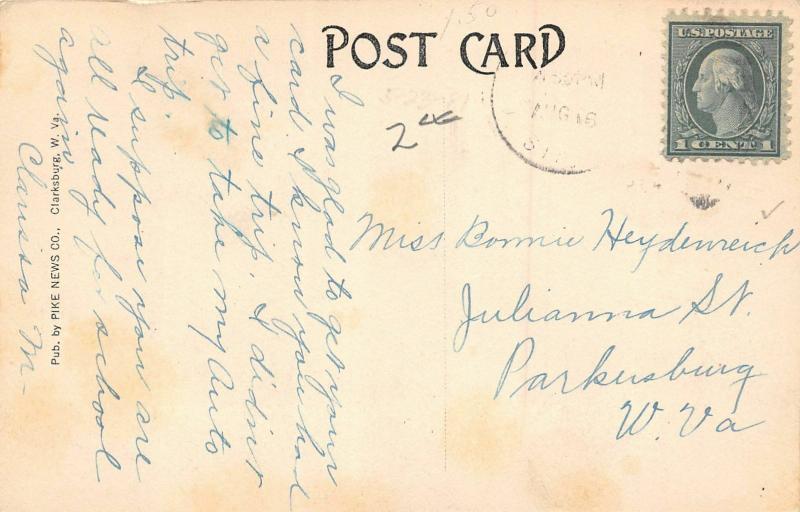 POST CARD
1.50
2⁰⁰
U.S. POSTAGE
1 CENT 1
AUG 16
I was glad to get your
card. I know you had
a fine trip. I didn't
get to take my Auto
trip.
I suppose you are
all ready for school
again.
Clarissa M-
Pub. by PIKE NEWS CO., Clarksburg, W. Va.
Miss Bonnie Heydenreich
Julianna St.
Parkersburg
W. Va